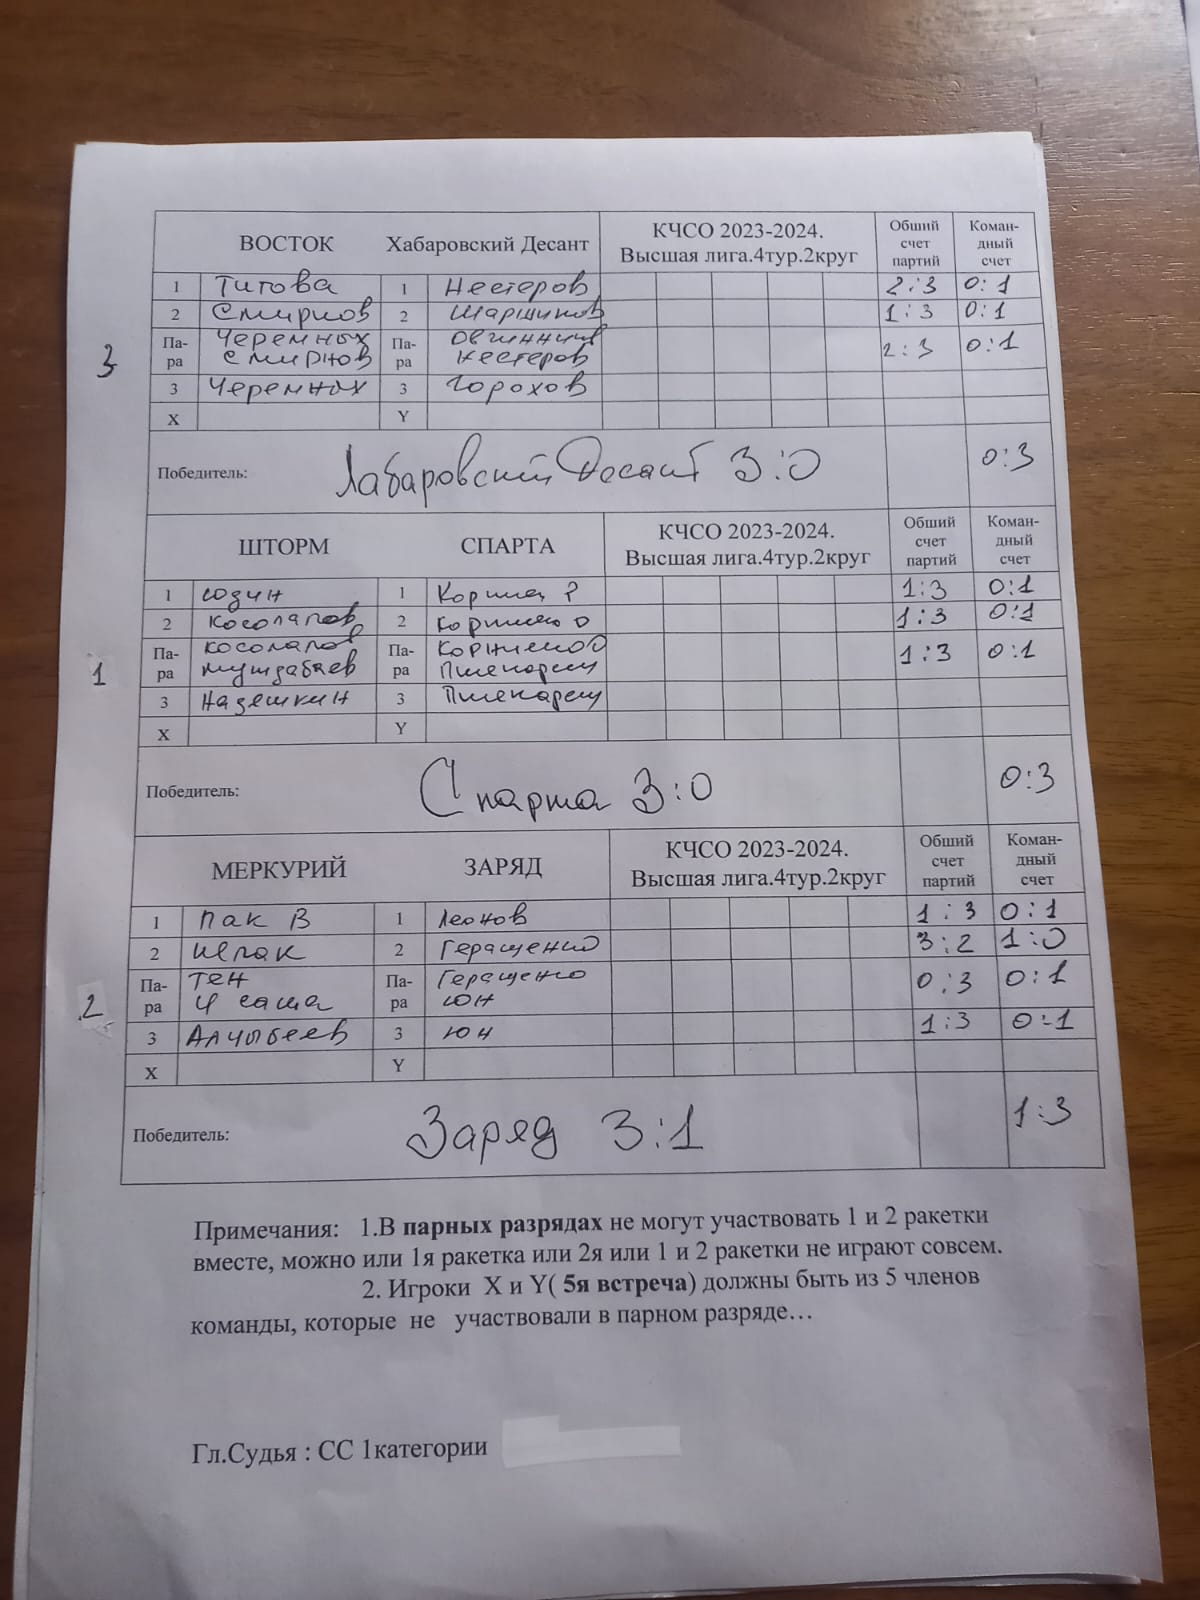 ВОСТОК Хабаровский Десант КЧСО 2023-2024. Высшая лига.4тур.2круг Общий счет партий Коман-дный счет
1 Титова 1 Нестеров 2:3 0:1
2 Смирнов 2 Шаршинов 1:3 0:1
Па-ра Черемных Па-ра Овчинник 2:3 0:1
Смирнов Нестеров
3 Черемных 3 Горохов
X Y
Победитель: Хабаровский Десант 3:0 0:3
3
ШТОРМ СПАРТА КЧСО 2023-2024. Высшая лига.4тур.2круг Общий счет партий Коман-дный счет
1 1 1:3 0:1
2 Косолапов 2 1:3 0:1
Па-ра Косолапов Па-ра 1:3 0:1
3 Назешкин 3
X Y
Победитель: Спарта 3:0 0:3
1
МЕРКУРИЙ ЗАРЯД КЧСО 2023-2024. Высшая лига.4тур.2круг Общий счет партий Коман-дный счет
1 Пак В 1 Леонов 1:3 0:1
2 2 Геращенко 3:2 1:0
Па-ра Тен Па-ра Геращенко 0:3 0:1
саша Юн
3 3 Юн 1:3 0-1
X Y
Победитель: Заряд 3:1 1:3
2
Примечания: 1.В парных разрядах не могут участвовать 1 и 2 ракетки
вместе, можно или 1я ракетка или 2я или 1 и 2 ракетки не играют совсем.
2. Игроки X и Y( 5я встреча) должны быть из 5 членов
команды, которые не участвовали в парном разряде…
Гл.Судья : СС 1категории